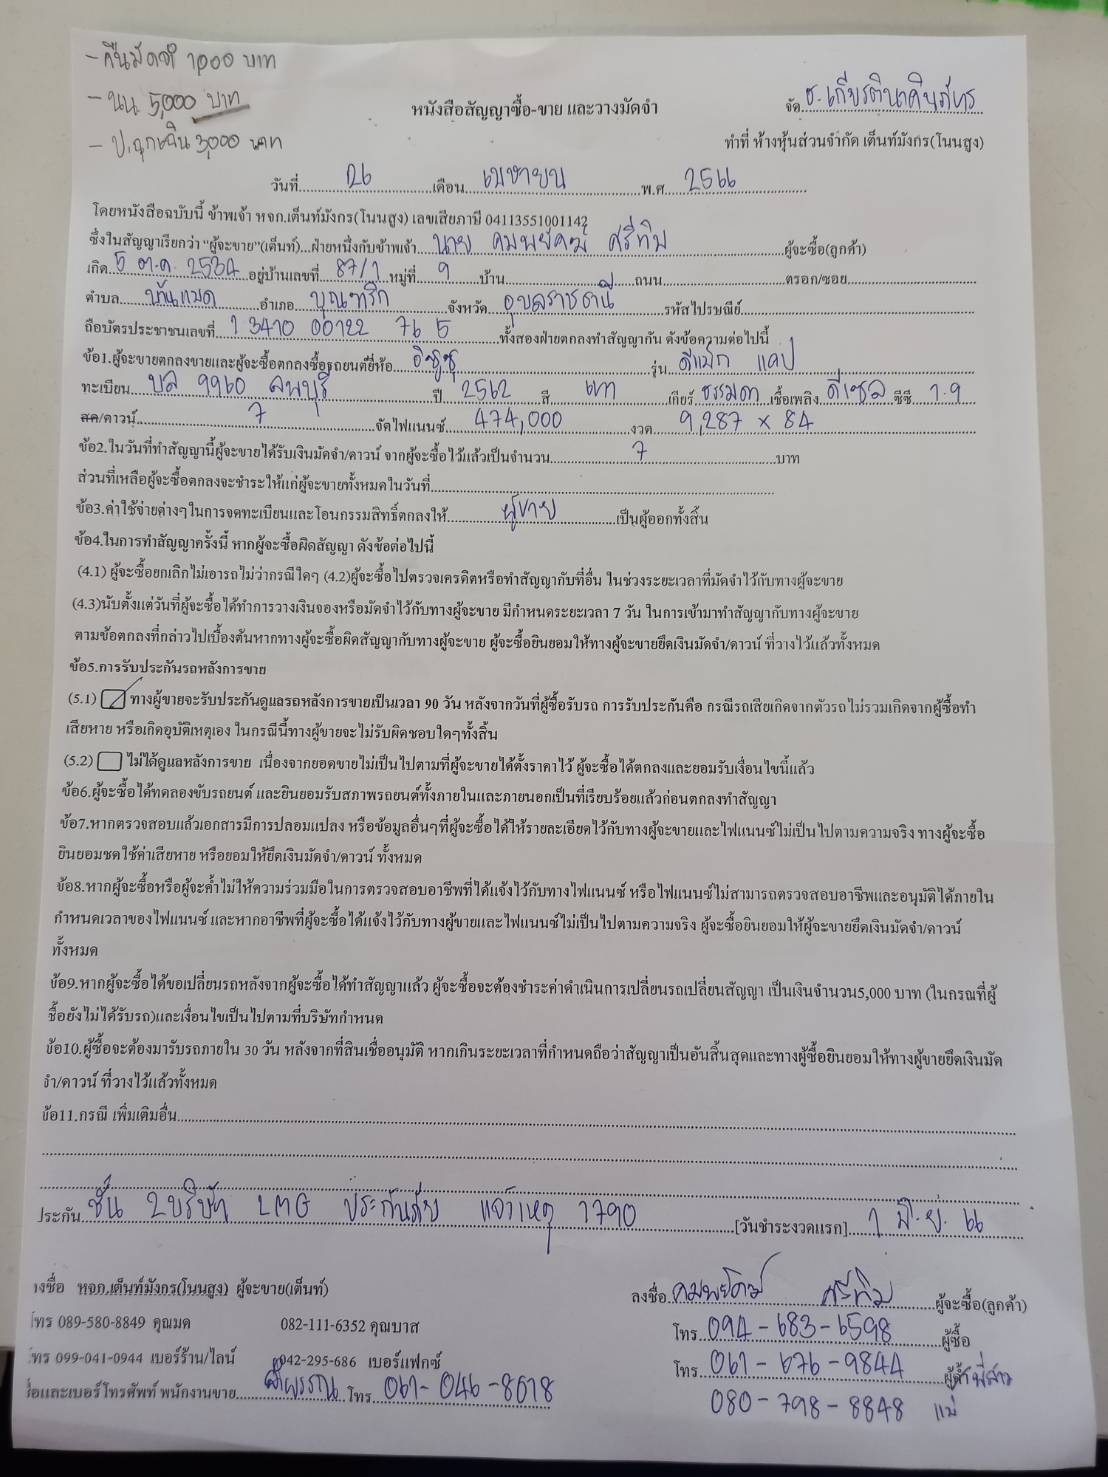 - คืนมัดจำ 1000 บาท
- นน. 5,000 บาท
- ป.ฉุกเฉิน 3,000 บาท
หนังสือสัญญาซื้อ-ขาย และวางมัดจำ
จัด ธ.เกียรตินาคินภัทร
ทำที่ ห้างหุ้นส่วนจำกัด เต็นท์มังกร(โนนสูง)
วันที่ 26 เดือน เมษายน พ.ศ. 2566
โดยหนังสือฉบับนี้ ข้าพเจ้า หจก.เต็นท์มังกร(โนนสูง) เลขเสียภาษี 04113551001142
ซึ่งในสัญญาเรียกว่า "ผู้จะขาย"(เต็นท์)...ฝ่ายหนึ่งกับข้าพเจ้า นาย คมพยัคฆ์ ศรีทิม ผู้จะซื้อ(ลูกค้า)
เกิด 5 ต.ค. 2534 อยู่บ้านเลขที่ 87/1 หมู่ที่ 9 บ้าน ถนน ตรอก/ซอย
ตำบล บ้านแมด อำเภอ บุณฑริก จังหวัด อุบลราชธานี รหัสไปรษณีย์
ถือบัตรประชาชนเลขที่ 1 3410 00122 76 5 ทั้งสองฝ่ายตกลงทำสัญญากัน ดังข้อความต่อไปนี้
ข้อ1.ผู้จะขายตกลงขายและผู้จะซื้อตกลงซื้อรถยนต์ยี่ห้อ อีซูซุ รุ่น ดีแม็ก แคป
ทะเบียน บล 9960 ลพบุรี ปี 2562 สี เทา เกียร์ ธรรมดา เชื้อเพลิง ดีเซล ซีซี 1.9
สด/ดาวน์ 7 จัดไฟแนนซ์ 474,000 งวด 9,287 x 84
ข้อ2.ในวันที่ทำสัญญานี้ผู้จะขายได้รับเงินมัดจำ/ดาวน์ จากผู้จะซื้อไว้แล้วเป็นจำนวน 7 บาท
ส่วนที่เหลือผู้จะซื้อตกลงจะชำระให้แก่ผู้จะขายทั้งหมดในวันที่
ข้อ3.ค่าใช้จ่ายต่างๆในการจดทะเบียนและโอนกรรมสิทธิ์ตกลงให้ ผู้ขาย เป็นผู้ออกทั้งสิ้น
ข้อ4.ในการทำสัญญาครั้งนี้ หากผู้จะซื้อผิดสัญญา ดังข้อต่อไปนี้
(4.1) ผู้จะซื้อยกเลิกไม่เอารถไม่ว่ากรณีใดๆ (4.2)ผู้จะซื้อไปตรวจเครดิตหรือทำสัญญากับที่อื่น ในช่วงระยะเวลาที่มัดจำไว้กับทางผู้จะขาย
(4.3)นับตั้งแต่วันที่ผู้จะซื้อได้ทำการวางเงินจองหรือมัดจำไว้กับทางผู้จะขาย มีกำหนดระยะเวลา 7 วัน ในการเข้ามาทำสัญญากับทางผู้จะขาย
ตามข้อตกลงที่กล่าวไปเบื้องต้นหากทางผู้จะซื้อผิดสัญญากับทางผู้จะขาย ผู้จะซื้อยินยอมให้ทางผู้จะขายยึดเงินมัดจำ/ดาวน์ ที่วางไว้แล้วทั้งหมด
ข้อ5.การรับประกันรถหลังการขาย
(5.1) ทางผู้ขายจะรับประกันดูแลรถหลังการขายเป็นเวลา 90 วัน หลังจากวันที่ผู้ซื้อรับรถ การรับประกันคือ กรณีรถเสียเกิดจากตัวรถไม่รวมเกิดจากผู้ซื้อทำ
เสียหาย หรือเกิดอุบัติเหตุเอง ในกรณีนี้ทางผู้ขายจะไม่รับผิดชอบใดๆทั้งสิ้น
(5.2) ไม่ได้ดูแลหลังการขาย เนื่องจากยอดขายไม่เป็นไปตามที่ผู้จะขายได้ตั้งราคาไว้ ผู้จะซื้อได้ตกลงและยอมรับเงื่อนไขนี้แล้ว
ข้อ6.ผู้จะซื้อได้ทดลองขับรถยนต์ และยินยอมรับสภาพรถยนต์ทั้งภายในและภายนอกเป็นที่เรียบร้อยแล้วก่อนตกลงทำสัญญา
ข้อ7.หากตรวจสอบแล้วเอกสารมีการปลอมแปลง หรือข้อมูลอื่นๆที่ผู้จะซื้อได้ให้รายละเอียดไว้กับทางผู้จะขายและไฟแนนซ์ไม่เป็นไปตามความจริง ทางผู้จะซื้อ
ยินยอมชดใช้ค่าเสียหาย หรือยอมให้ยึดเงินมัดจำ/ดาวน์ ทั้งหมด
ข้อ8.หากผู้จะซื้อหรือผู้จะค้ำไม่ให้ความร่วมมือในการตรวจสอบอาชีพที่ได้แจ้งไว้กับทางไฟแนนซ์ หรือไฟแนนซ์ไม่สามารถตรวจสอบอาชีพและอนุมัติได้ภายใน
กำหนดเวลาของไฟแนนซ์ และหากอาชีพที่ผู้จะซื้อได้แจ้งไว้กับทางผู้ขายและไฟแนนซ์ไม่เป็นไปตามความจริง ผู้จะซื้อยินยอมให้ผู้จะขายยึดเงินมัดจำ/ดาวน์
ทั้งหมด
ข้อ9.หากผู้จะซื้อได้ขอเปลี่ยนรถหลังจากผู้จะซื้อได้ทำสัญญาแล้ว ผู้จะซื้อจะต้องชำระค่าดำเนินการเปลี่ยนรถเปลี่ยนสัญญา เป็นเงินจำนวน5,000 บาท (ในกรณที่ผู้
ซื้อยังไม่ได้รับรถ)และเงื่อนไขเป็นไปตามที่บริษัทกำหนด
ข้อ10.ผู้ซื้อจะต้องมารับรถภายใน 30 วัน หลังจากที่สินเชื่ออนุมัติ หากเกินระยะเวลาที่กำหนดถือว่าสัญญาเป็นอันสิ้นสุดและทางผู้ซื้อยินยอมให้ทางผู้ขายยึดเงินมัด
จำ/ดาวน์ ที่วางไว้แล้วทั้งหมด
ข้อ11.กรณี เพิ่มเติมอื่น
ประกัน ชั้น 2 บริษัท LMG ประกันภัย แจ้งเหตุ 1790 [วันชำระงวดแรก] 1 มิ.ย. 66
งชื่อ หจก.เต็นท์มังกร(โนนสูง) ผู้จะขาย(เต็นท์)
ลงชื่อ คมพยัคฆ์ ศรีทิม ผู้จะซื้อ(ลูกค้า)
โทร 089-580-8849 คุณมด 082-111-6352 คุณบาส
โทร. 094-683-6598 ผู้ซื้อ
โทร 099-041-0944 เบอร์ร้าน/ไลน์ 042-295-686 เบอร์แฟกซ์
โทร. 061-676-9844 ผู้ค้ำ พี่สาว
ชื่อและเบอร์โทรศัพท์ พนักงานขาย โทร. 061-046-8618
080-798-8848 แม่